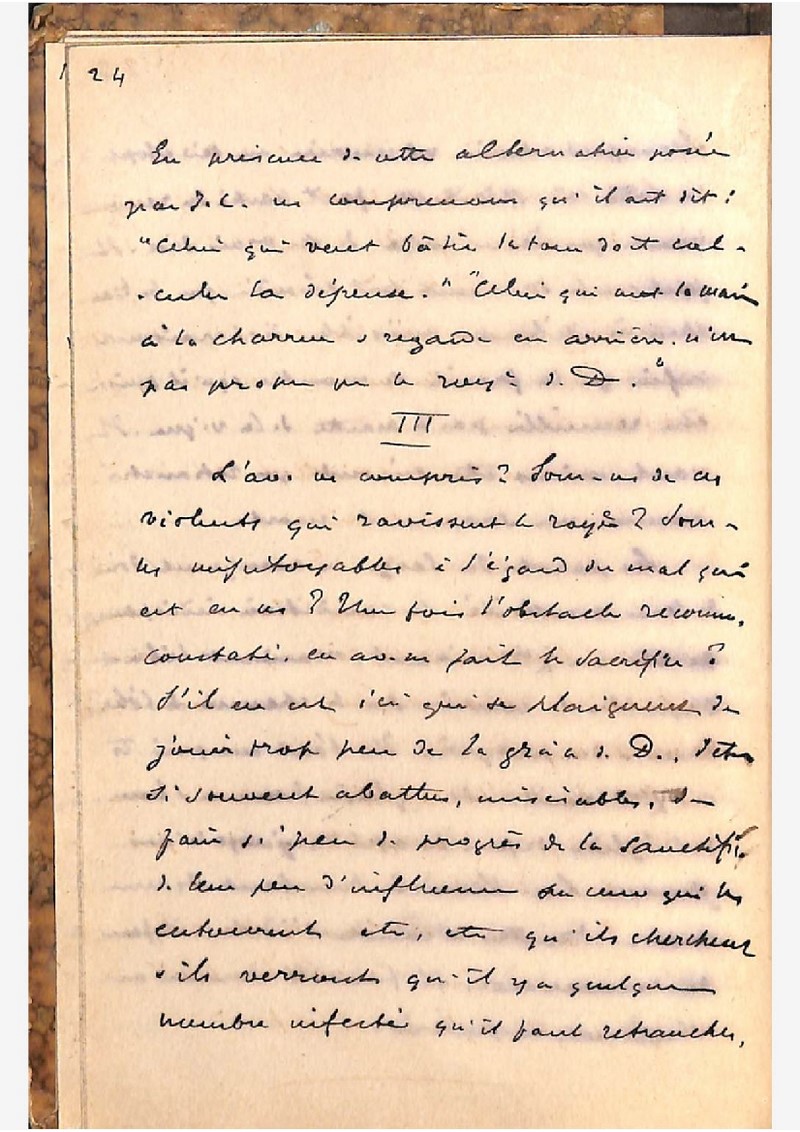 24
En présence de cette alternative posée
par J. C. ns comprenons qu'il ait dit :
"Celui qui veut bâtir la tour doit cal-
-culer la dépense." "Celui qui met la main
à la charrue & regarde en arrière. n'est
pas propre pr le roye d. D."
III
L'av. ns compris ? Som-ns de ces
violents qui ravissent le roye ? Som-
ns impitoyables à l'égard du mal qui
est en ns ? Une fois l'obstacle reconnu,
constaté, en av.-ns fait le sacrifice ?
S'il en est ici qui se plaignent de
jouir trop peu de la grâce d. D., d'être
si souvent abattus, misérables, de
faire si peu d. progrès de la sanctifi.
d. leur peu d'influence sur ceux qui les
entourent etc, etc qu'ils cherchent
& ils verront qu'il y a quelque
membre infecté qu'il faut retrancher,